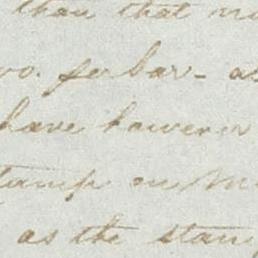 than that
for bar- a
have however
stamp on M
as the stam